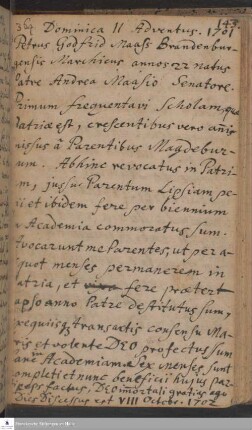 369. Dominica II Adventus. 1701
143
Petrus Godfrid Maass Brandenbur-
gensis Marchicus annos 22 natus
Patre Andrea Maasio Senatore.
Primum frequentavi Scholam, quæ
Patriæ est, crescentibus vero annis
missus à Parentibus Magdebur-
um. Abhinc revocatus in Patri-
m, jussu Parentum Lipsiam pe-
ii et ibidem fere per biennium
n Academia commoratus sum.
vocarunt me Parentes, ut per a-
quot menses permanerem in
atria, et fere præter
apso anno Patre destitutus sum,
exequiisq; transactis consensu Ma-
ris et volente DEO profectus sum
Academiam. Sex menses sunt
ompleti et nunc beneficii hujus par-
ceps factus, Deo immortali gratias ago
Dies Discessus est VIII Octobr. 1702